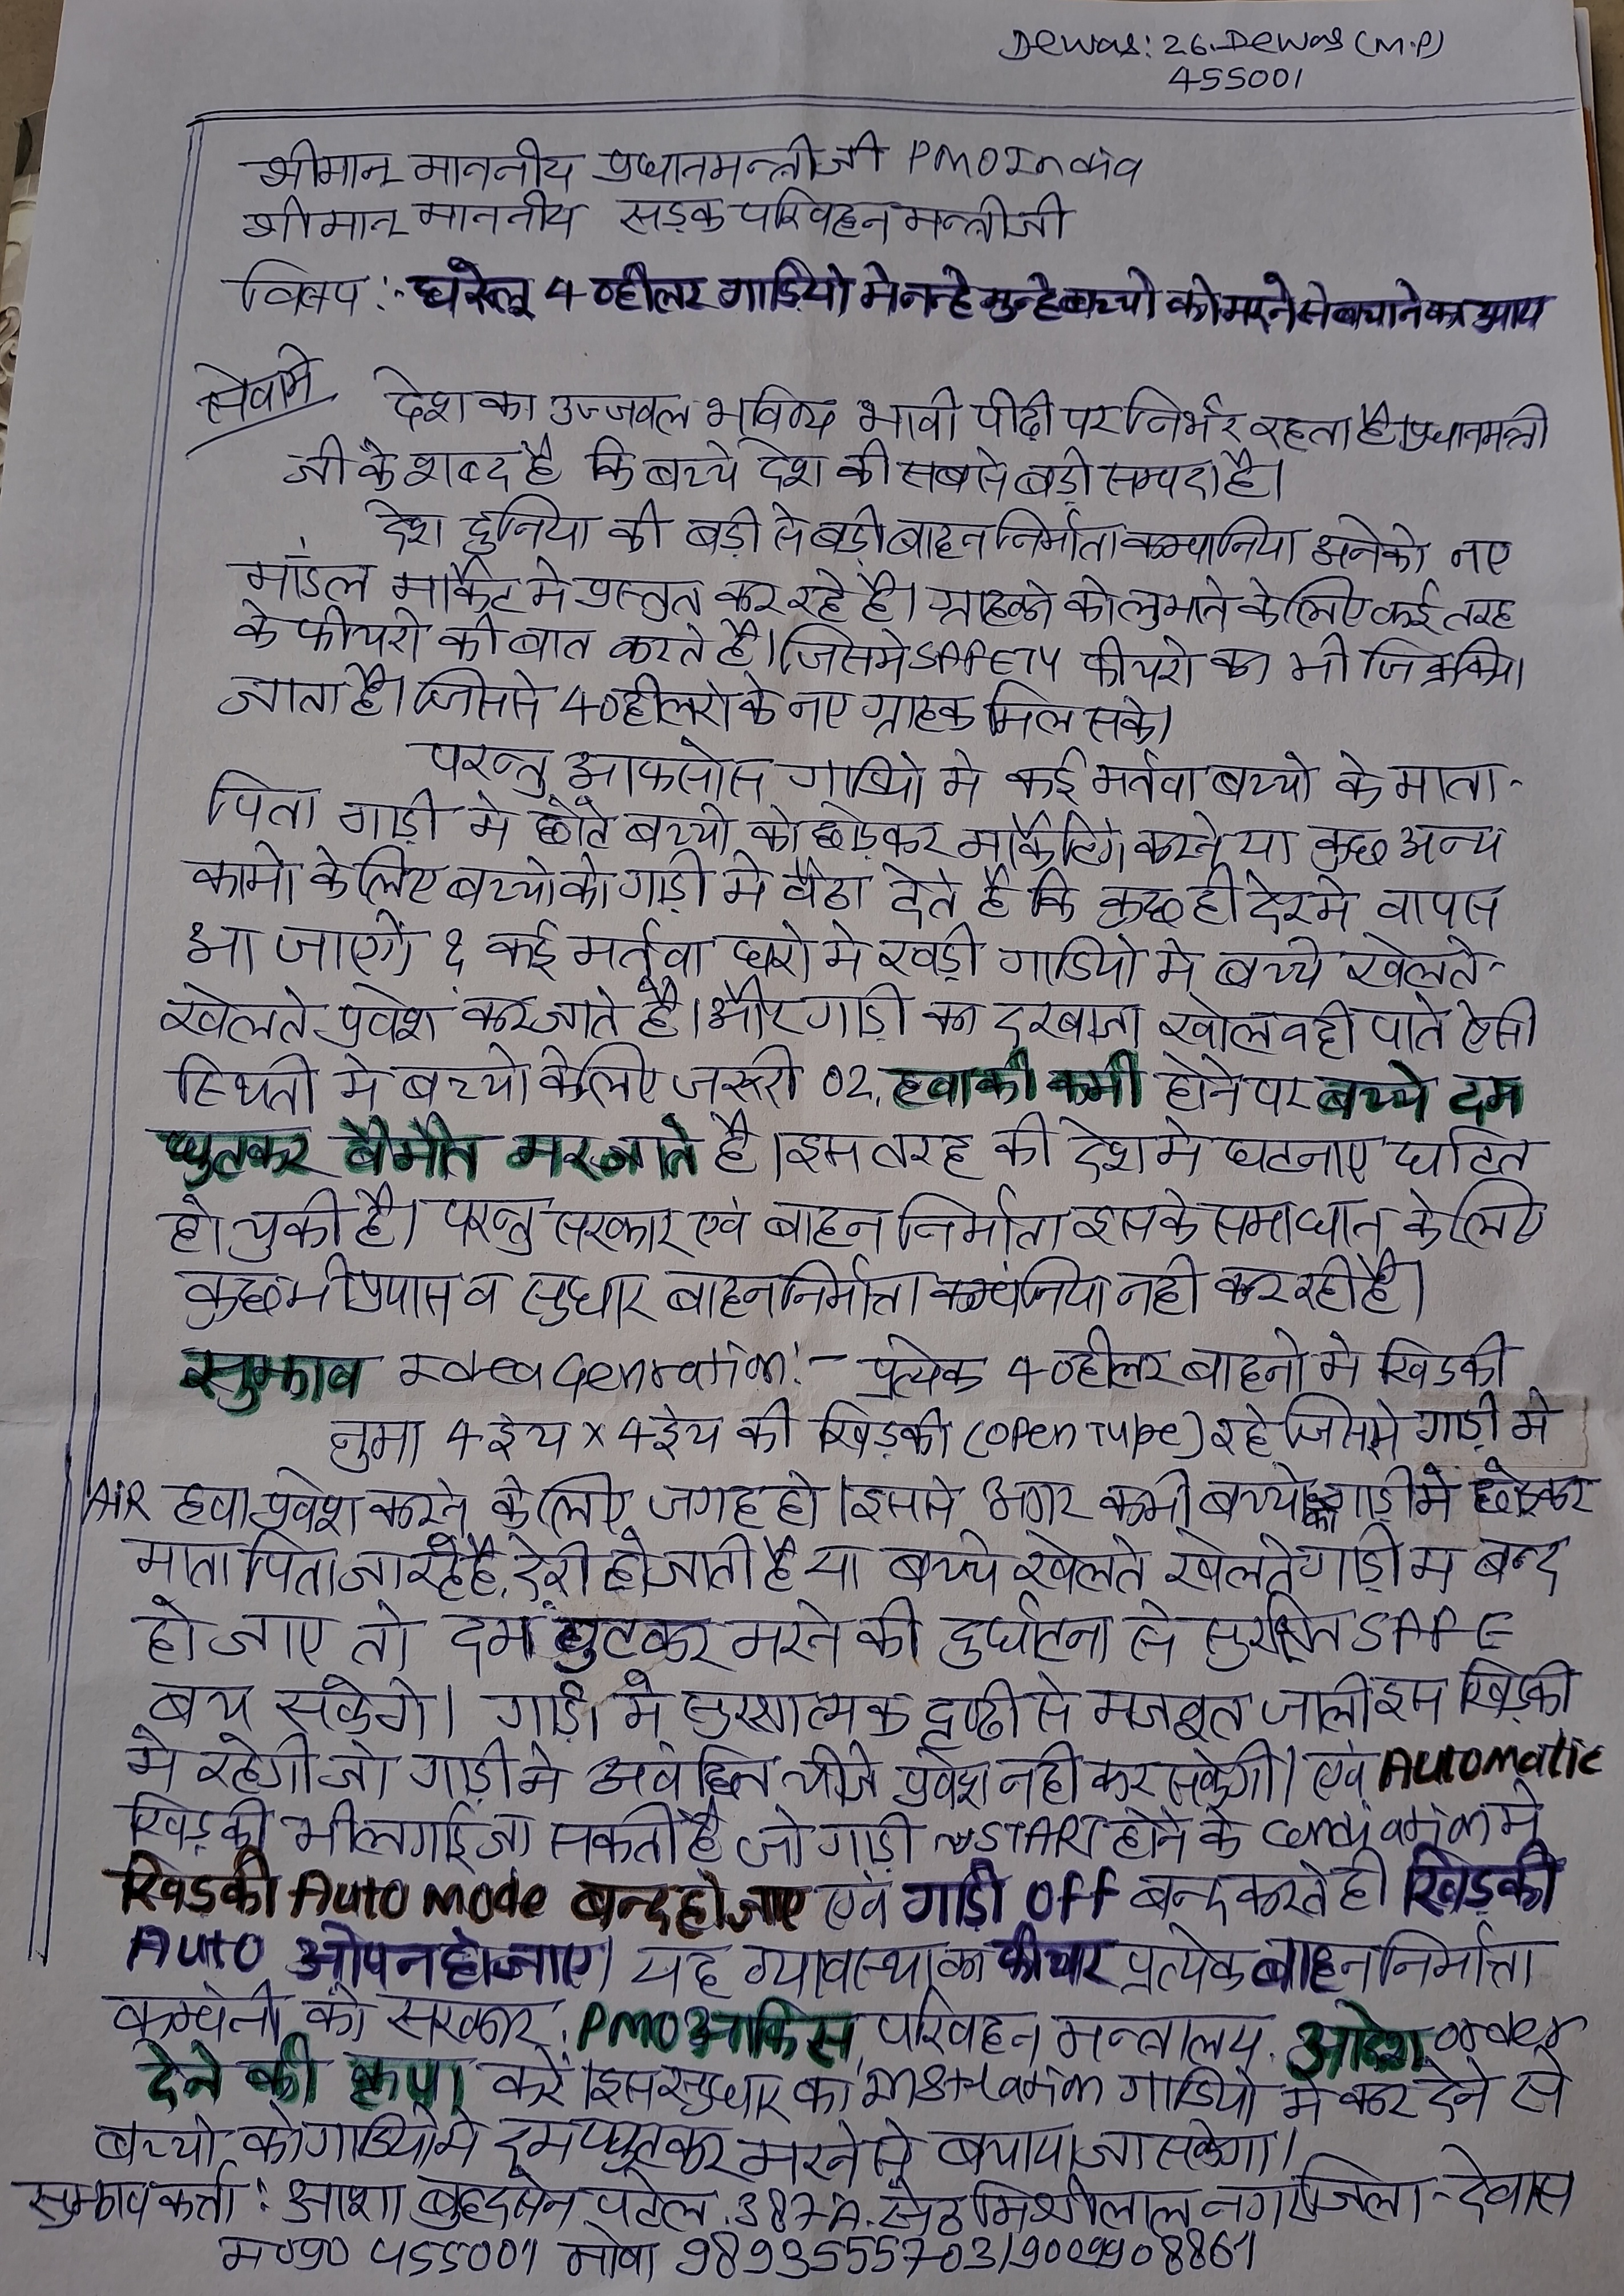 Dewas: 26. Dewas (M.P)
455001
श्रीमान माननीय प्रधानमन्त्रीजी PMO India
श्रीमान माननीय सड़क परिवहन मन्त्रीजी
विषय :- घरेलू 4 व्हीलर गाडियो मे नन्हे मुन्हे बच्चो को मरने से बचाने का उपाय
सेवामे देश का उज्जवल भविष्य भावी पीढी पर निर्भर रहता है। प्रधानमन्त्री
जी के शब्द है कि बच्चे देश की सबसे बड़ी सम्पदा है।
देश दुनिया की बड़ी से बड़ी बाहन निर्माता कम्पनिया अनेको नए
मॉडल मार्केट मे प्रस्तुत कर रहे है। ग्राहको को लुभाने के लिए कई तरह
के फीचरो की बात करते है। जिसमे SAFETY फीचरो का भी जिक्र किया
जाता है। जिससे 4 व्हीलरो के नए ग्राहक मिल सके।
परन्तु आफसोस गाडियो मे कई मर्तवा बच्चो के माता-
पिता गाड़ी मे छोटे बच्चो को छोड़कर मार्केटिंग करने या कुछ अन्य
कामो के लिए बच्चो को गाड़ी मे बैठा देते है कि कुछ ही देर मे वापस
आ जाएगें & कई मर्तवा घरो मे खड़ी गाडियो मे बच्चे खेलते-
खेलते प्रवेश कर जाते है। और गाड़ी का दरबाजा खोल नही पाते ऐसी
स्थिती मे बच्चो के लिए जरूरी O2, हवा की कमी होने पर बच्चे दम
घुटकर बैमौत मर जाते है। इस तरह की देश मे घटनाए घटित
हो चुकी है। परन्तु सरकार एवं बाहन निर्माता इसके समाधान के लिए
कुछ भी प्रयास व सुधार बाहन निर्माता कम्पनिया नही कर रही है।
सुझाव Idea Genration :- प्रत्येक 4 व्हीलर बाहनो मे खिडकी
नुमा 4 इंच x 4 इंच की खिड़की (open Type) रहे जिससे गाड़ी मे
AIR हवा प्रवेश करने के लिए जगह हो। इससे अगर कभी बच्चो को गाड़ी मे छोड़कर
माता पिता जा रहे है, देरी हो जाती है या बच्चे खेलते खेलते गाड़ी मे बन्द
हो जाए तो दम घुटकर मरने की दुर्घटना से सुरक्षित SAFE
बच सकेगे। गाड़ी मे सुरक्षात्मक द्रष्टी से मजबूत जाली इस खिड़की
मे रहेगी जो गाड़ी मे अवांछित चीजे प्रवेश नही कर सकेगी। एवं Automatic
खिड़की भी लगाई जा सकती है जो गाड़ी START होने के condiation मे
खिडकी Auto mode बन्द हो जाए एवं गाड़ी OFF बन्द करते ही खिड़की
Auto ओपन हो जाए। यह व्यावस्था का फीचर प्रत्येक बाहन निर्माता
कम्पनी को सरकार, PMO आफिस, परिवहन मन्त्रालय. आदेश order
देने की क्रपा करें। इस सुधार का instlation गाडियो मे कर देने से
बच्चो को गाडियो मे दम घुटकर मरने से बचाया जा सकेगा।
सुझाव कर्ता : आशा बुद्धसेन पटेल. 387-A. सेठ मिश्रीलाल नगर जिला-देवास
म०प्र० 455001 मोबा 9893555703/9009908861